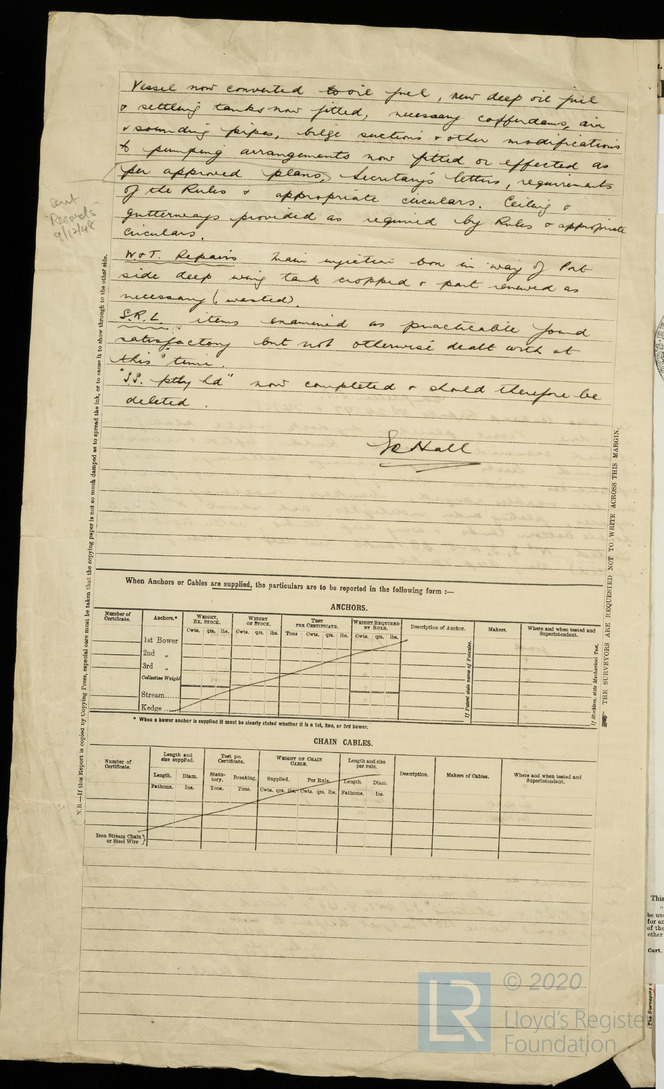 Vessel now converted to oil fuel, new deep oil fuel
& settling tanks now fitted, necessary cofferdams, air
& sounding pipes, bilge suctions & other modifications
to pumping arrangements now fitted or effected as
per approved plans, Secretary's letters, requirements
of the Rules & appropriate circulars. Ceiling &
gutterways provided as required by Rules & appropriate
circulars.
Records
9/12/48
W & T. Repairs Main injection box in way of Port
side deep wing tank cropped & part renewed as
necessary (wasted).
S.R.L. items examined as practicable found
satisfactory but not otherwise dealt with at
this time.
"SS. ptly hd" now completed & should therefore be
deleted.
Hall
N.B.—If this Report is copied by Copying Press, especial care must be taken that the copying paper is not so much damped as to spread the ink, or to cause it to show through to the other side.
THE SURVEYORS ARE REQUESTED NOT TO WRITE ACROSS THIS MARGIN.
When Anchors or Cables are supplied, the particulars are to be reported in the following form :—
ANCHORS.
Number of Certificate. Anchors.* WEIGHT, EX. STOCK. WEIGHT OF STOCK. TEST PER CERTIFICATE. WEIGHT REQUIRED BY RULE. Description of Anchor. Makers. Where and when tested and Superintendent.
Cwts. qrs. lbs. Cwts. qrs. lbs. Tons cwts. qrs. lbs. Cwts. qrs. lbs.
1st Bower
2nd „
3rd „
Collective Weight
Stream......
Kedge......
If Patent state name of Patentee.
If Stockless, state Mechanical Test.
* When a bower anchor is supplied it must be clearly stated whether it is a 1st, 2nd, or 3rd bower.
CHAIN CABLES.
Number of Certificate. Length and size supplied. Test per Certificate. WEIGHT OF CHAIN CABLE. Length and size per rule. Description. Makers of Cables. Where and when tested and Superintendent.
Length. Diam. Statutory. Breaking. Supplied. Per Rule. Length. Diam.
Fathoms. Ins. Tons. Tons. Cwts. qrs. lbs. Cwts. qrs. lbs. Fathoms. Ins.
Iron Stream Chain
or Steel Wire
This
for an
of the
other
Cert.
LR
© 2020
Lloyd's Register
Foundation